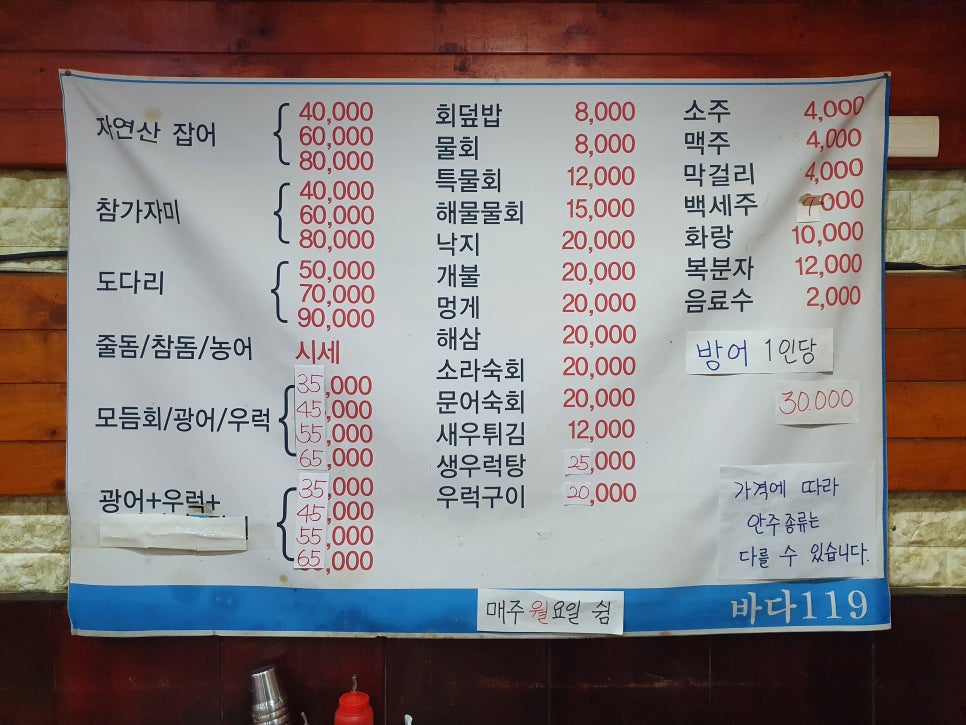 자연산 잡어
40,000
60,000
80,000
참가자미
40,000
60,000
80,000
도다리
50,000
70,000
90,000
줄돔/참돔/농어 시세
모듬회/광어/우럭
35,000
45,000
55,000
65,000
광어+우럭+
35,000
45,000
55,000
65,000
회덮밥 8,000
물회 8,000
특물회 12,000
해물물회 15,000
낙지 20,000
개불 20,000
멍게 20,000
해삼 20,000
소라숙회 20,000
문어숙회 20,000
새우튀김 12,000
생우럭탕 25,000
우럭구이 20,000
소주 4,000
맥주 4,000
막걸리 4,000
백세주 000
화랑 10,000
복분자 12,000
음료수 2,000
방어 1인당
30.000
가격에 따라
안주종류는
다를 수 있습니다.
매주 월요일 쉼
바다119